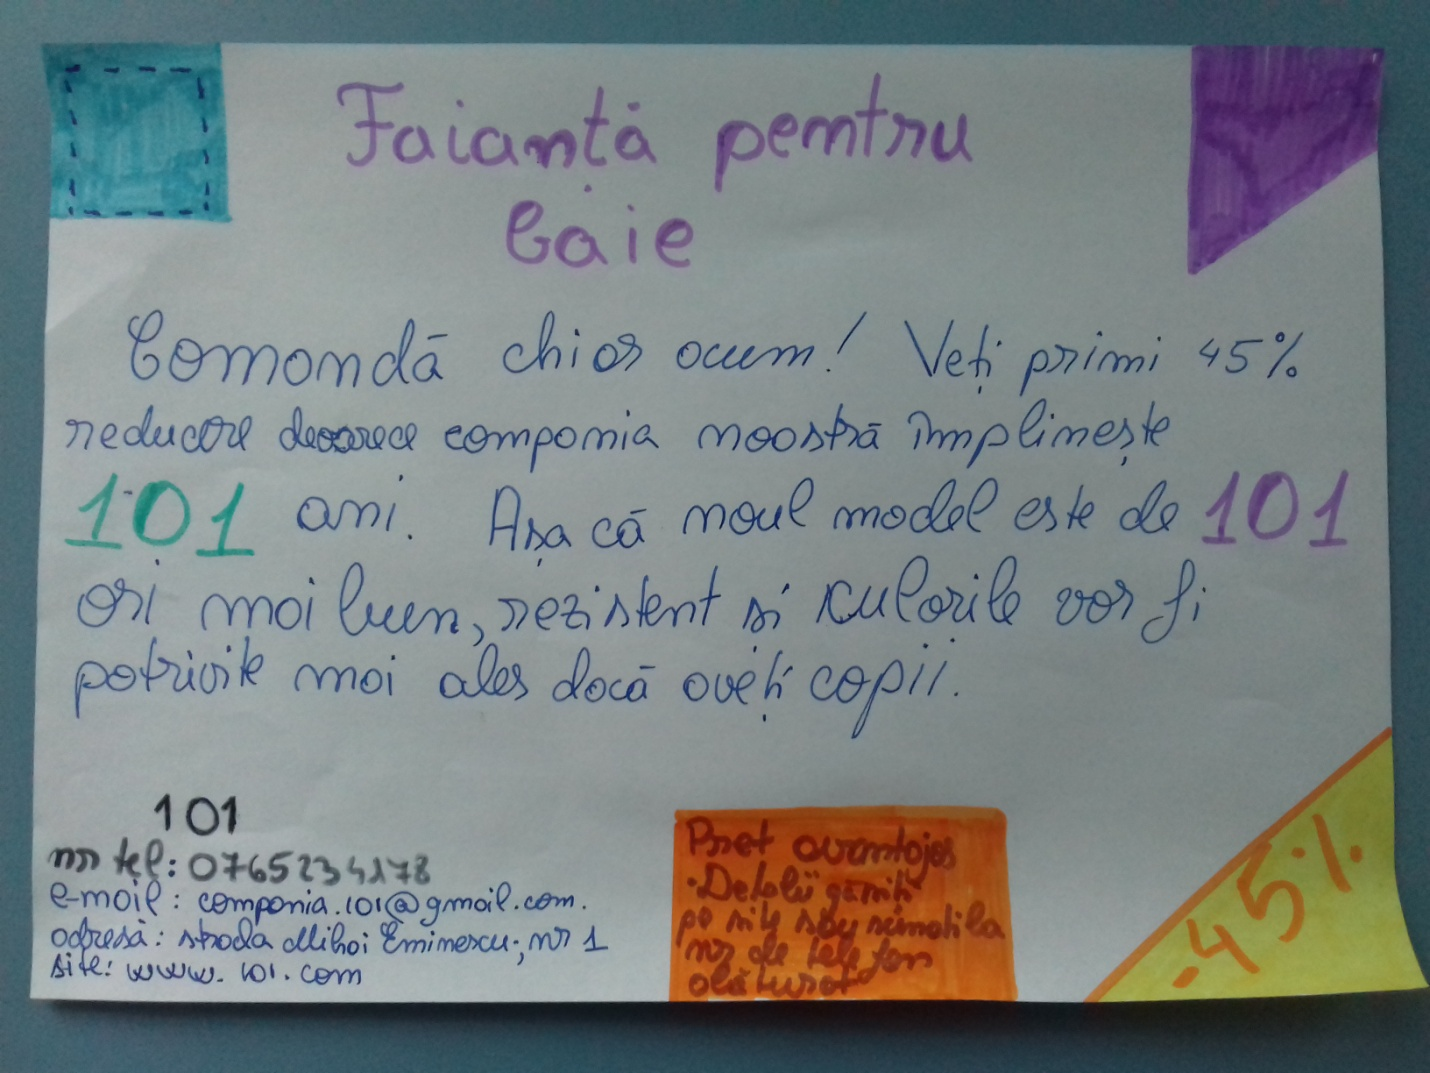 Faianță pentru
baie
Comandă chiar acum! Veți primi 45%
reducere deoarece compania noastră împlinește
101 ani. Așa că noul model este de 101
ori mai bun, rezistent si culorile vor fi
potrivite mai ales dacă aveți copii.
101
nr tel: 0765234178
e-mail: compania.101@gmail.com.
adresă: strada Mihai Eminescu, nr 1
site: www.101.com
Pret avantajos
·Detalii găsiți
pe site sau sunati la
nr de telefon
alăturat
-45%